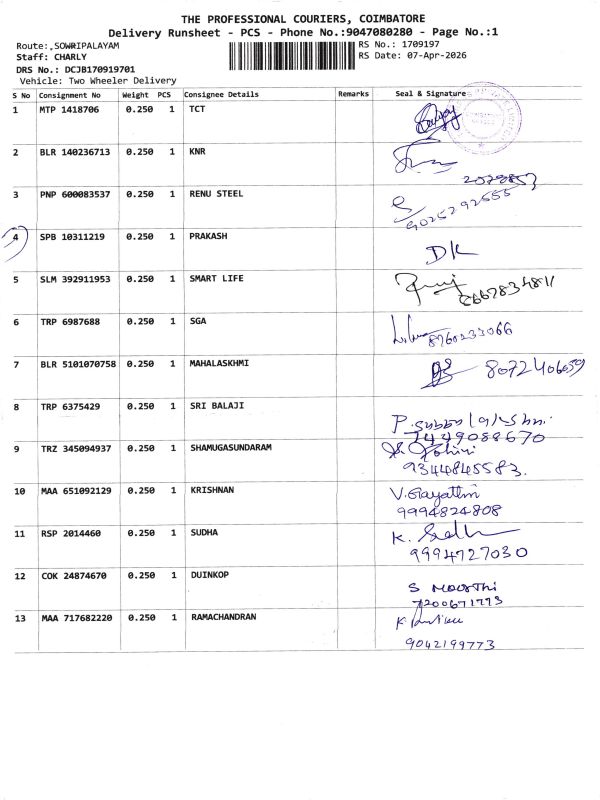 THE PROFESSIONAL COURIERS, COIMBATORE
Delivery Runsheet - PCS - Phone No.:9047080280 - Page No.:1
Route: SOWRIPALAYAM
RS No.: 1709197
Staff: CHARLY
RS Date: 07-Apr-2026
DRS No.: DCJB170919701
Vehicle: Two Wheeler Delivery
S No Consignment No Weight PCS Consignee Details Remarks Seal & Signature
1 MTP 1418706 0.250 1 TCT
2 BLR 140236713 0.250 1 KNR
3 PNP 600083537 0.250 1 RENU STEEL
9025292555
4 SPB 10311219 0.250 1 PRAKASH DK
5 SLM 392911953 0.250 1 SMART LIFE
6 TRP 6987688 0.250 1 SGA
8760233066
7 BLR 5101070758 0.250 1 MAHALASKHMI 8072406059
8 TRP 6375429 0.250 1 SRI BALAJI
7449088670
9 TRZ 345094937 0.250 1 SHAMUGASUNDARAM
9344845583.
10 MAA 651092129 0.250 1 KRISHNAN V.Gayathri
9994824808
11 RSP 2014460 0.250 1 SUDHA
9994727030
12 COK 24874670 0.250 1 DUINKOP S Moorthi
7200671773
13 MAA 717682220 0.250 1 RAMACHANDRAN
9042199773